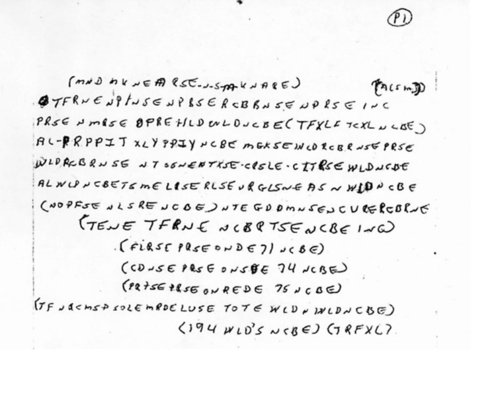 P1
(MND MKNEARSE-N-S-M-KNARE) (ACSM)
TFRNENPINSENPBSERCBBNSENPRSE INC
PRSE NMRSE OPREHLDWLDNCBE(TFXLF TCXL NCBE)
AL-PRPPIT XLYPPIY NCBE MGKSEWLDRCBRNSEPRSE
WLDRCBRNSE NTOSNENTXSE-CRSLE-CITRSE WLDNCBE
ALWLDNCBETSMELRSERLSEURGLSNEASNWLDNCBE
(NOPFSE NLSRENCBE)NTEGDDMNSENCURERCBRNE
(TENE TFRNE NCBRTSENCBE ING)
(FIRSE PRSEONDE 71 NCBE)
(CDNSE PRSEONSDE 74 NCBE)
(PRTSEPRSEONREDE 75 NCBE)
(TFNRCMSPSOLEMRDELUSE TOTE WLDNWLDNCBE)
(194 WLD'S NCBE)(TRFXL)